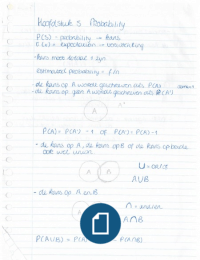 Hoofdstuk 5 Probability
P(S) = probability → kans
E(x) = expectation → verwachting
- kans moet totaal 1 zijn
- de kans op A wordt geschreven als P(A)
- de kans op geen A wordt geschreven als
A
P(A) + P(A') = 1 of
- de kans op A, de kans op B of de kans op beide
ook wel union
U = and/or
A U B
- de kans op A en B
∩ =
A ∩ B
A
P(A U B) = P(A)
P(A ∩ B)